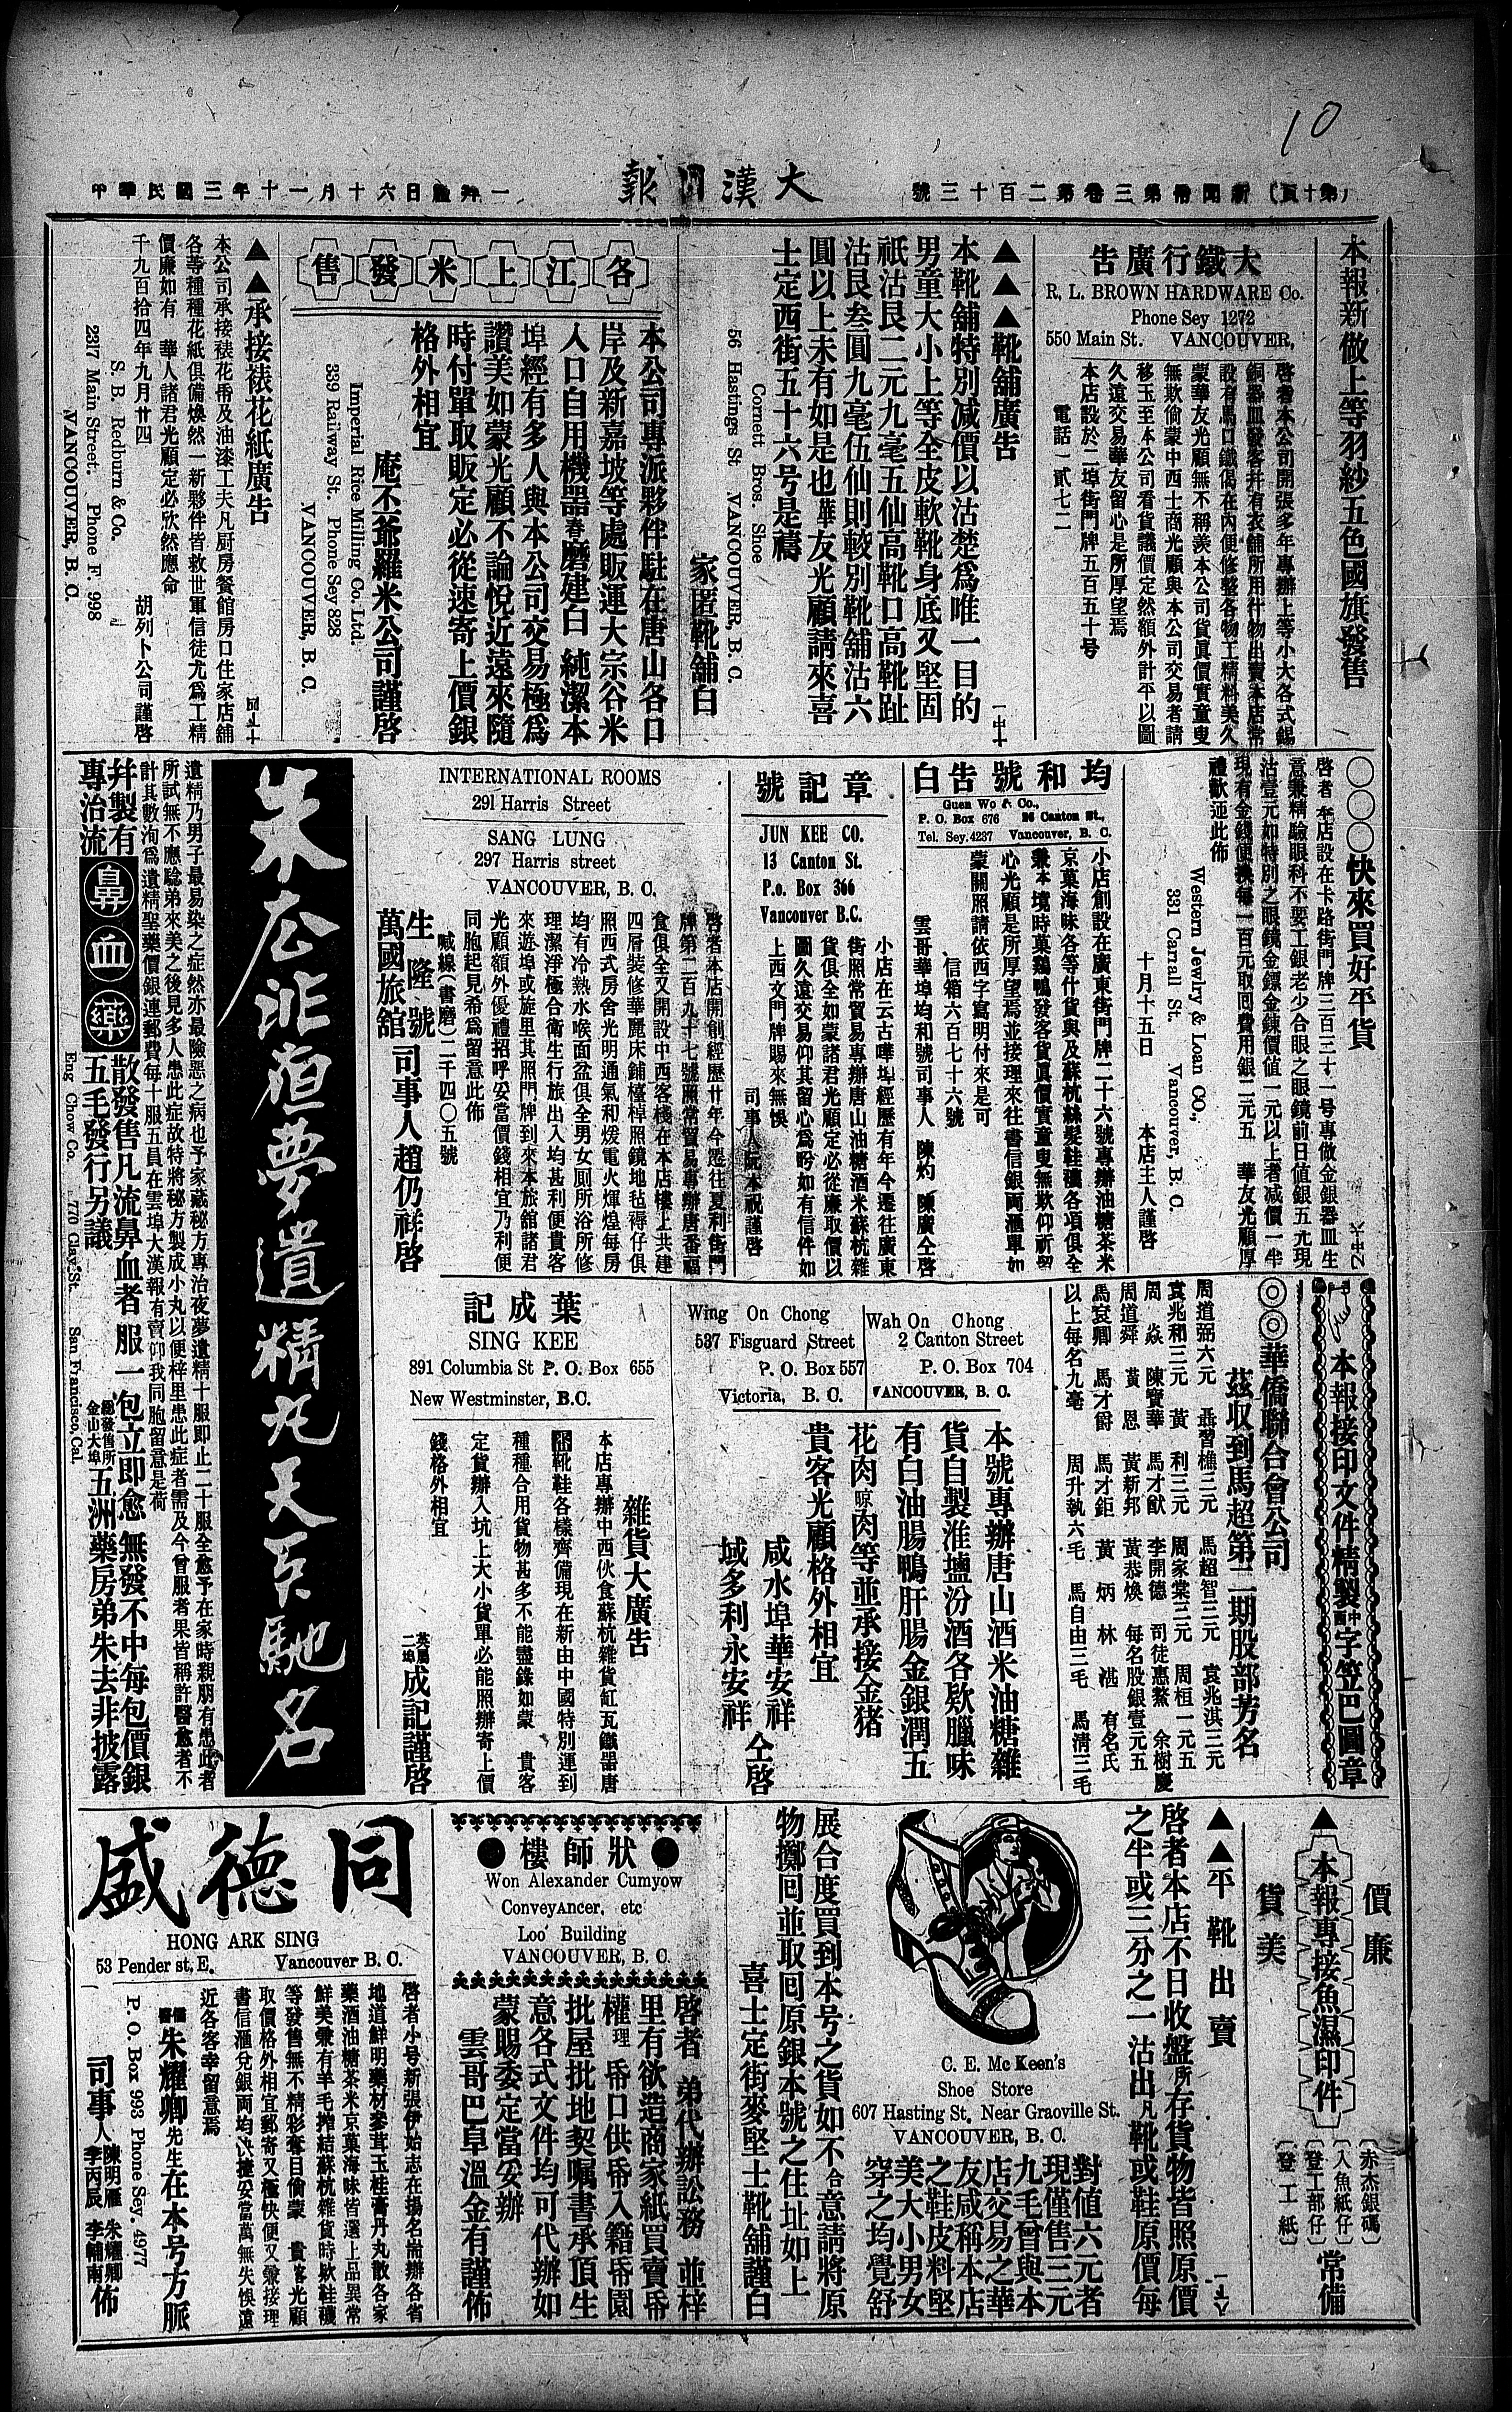 10
大漢日報
(第十頁) 新聞帋第三卷第二百十三號
中華民國三年十一月十六日禮拜一
本報新做上等羽紗五色國旗發售
大鐵行廣告
R. L. BROWN HARDWARE Co.
Phone Sey 1272
550 Main St. VANCOUVER,
啓者本公司開張多年專辦上等小大各式錫
銅器皿發客幷有衣舖所用什物出賣本店常
設有馬口鐵偈在內便修整各物工精料美久
蒙華友光顧無不稱羨本公司貨眞價實童叟
無欺倘蒙中西士商光顧與本公司交易者請
移玉至本公司看貨議價定然額外計平以圖
久遠交易華友留心是所厚望焉
本店設於二埠街門牌五百五十号
電話一貳七二
▲▲▲靴舖廣告
本靴舖特別減價以沽楚爲唯一目的
男童大小上等全皮軟靴身底又堅固
祇沽艮二元九毫五仙高靴口高靴趾
沽艮叁圓九毫伍仙則較別靴舖沽六
圓以上未有如是也華友光顧請來喜
士定西街五十六号是禱
Cornett Bros. Shoe
56 Hastings St VANCOUVER, B. C.
家匿靴舖白
各江上米發售
本公司專派夥伴駐在唐山各口
岸及新嘉坡等處販運大宗谷米
入口自用機器舂磨建白純潔本
埠經有多人與本公司交易極爲
讚美如蒙光顧不論悅近遠來隨
時付單取販定必從速寄上價銀
格外相宜
庵丕爺羅米公司謹啓
Imperial Rice Milling Co. Ltd.
339 Railway St. Phone Sey 828
VANCOUVER, B. C.
▲▲承接裱花紙廣告
本公司承接裱花帋及油漆工夫凡厨房餐館房口住家店舖
各等種種花紙俱備煥然一新夥伴皆救世軍信徒尤爲工精
價廉如有 華人諸君光顧定必欣然應命
千九百拾四年九月廿四 胡列卜公司謹啓
S. B. Redburn & Co.
2317 Main Street. Phone F. 998
VANCOUVER, B. C.
〇〇〇快來買好平貨
啓者本店設在卡路街門牌三百三十一号專做金銀器皿生
意兼精驗眼科不要工銀老少合眼之眼鏡前日値銀五元現
沽壹元如特別之眼鏡金鏢金鍊價値一元以上者減價一半
現有金錢便換每一百元取囘費用銀二元五 華友光顧厚
禮歡迎此佈
Western Jewlry & Loan CO.,
331 Carrall St. Vancouver, B. C.
十月十五日 本店主人謹啓
均和號告白
Guen Wo & Co.,
P. O. Box 676 26 Canton St.,
Tel. Sey. 4237 Vancouver, B. C.
小店創設在廣東街門牌二十六號專辦油糖茶米
京菓海味各等什貨與及蘇杭絲髪鞋襪各項俱全
兼本境時菓鷄鴨發客貨眞價實童叟無欺仰祈留
心光顧是所厚望焉並接理來往書信銀両滙單如
蒙關照請依西字寫明付來是可
信箱六百七十六號
雲哥華埠均和號司事人 陳灼 陳廣仝啓
章記號
JUN KEE CO.
13 Canton St.
P.o. Box 366
Vancouver B.C.
小店在云古嘩埠經歷有年今遷往廣東
街照常貿易專辦唐山油糖酒米蘇杭雜
貨俱全如蒙諸君光顧定必從廉取價以
圖久遠交易仰其留心爲盼如有信件如
上西文門牌賜來無悞
司事人阮本祝謹啓
INTERNATIONAL ROOMS
291 Harris Street
SANG LUNG
297 Harris street
VANCOUVER, B. C.
啓者本店開創經歷廿年今遷往夏利街門
牌第二百九十七號照常貿易專辦唐番福
食俱全又開設中西客棧在本店樓上共建
四層裝修華麗床鋪檯棹照鏡地毡褥仔俱
照西式房舍光明通氣和煖電火煇煌每房
均有冷熱水喉面盆俱全男女厠所浴所修
理潔淨極合衛生行旅出入均甚利便貴客
來遊埠或旋里其照門牌到來本旅舘諸君
光顧額外優禮招呼妥當價錢相宜乃利便
同胞起見希爲留意此佈
喊線(書磨)二千四〇五號
生隆號
萬國旅舘
司事人趙仍祥啓
朱公非洹夢遺精丸天下馳名
遺精乃男子最易染之症然亦最險惡之病也予家藏秘方專治夜夢遺精十服即止二十服全愈予在家時親朋有患此者
所試無不應騐弟來美之後見多人患此症故特將秘方製成小丸以便梓里患此症者需及今曾服者果皆稱許醫愈者不
計其數洵爲遺精聖藥價銀連郵費每十服五員在雲埠大漢報有賣仰我同胞留意是荷
幷製有專治流鼻血藥散發售凡流鼻血者服一包立即愈無發不中每包價銀
五毛發行另議 總發售所金山大埠五洲藥房弟朱去非披露
Eng Chow Co. 770 Clay St. San Francisco, Cal.
本報接印文件精製中西字笠巴圖章
◎◎華僑聯合會公司
茲收到馬超第二期股部芳名
周道弼六元 聶習樵三元 馬超智三元 袁兆淇三元
袁兆和三元 黃利三元 周家棠三元 周桓一元五
周焱 陳寶華 馬才猷 李開德 司徒惠鰲 余樹慶
周道舜 黃恩 黃新邦 黃恭煥 每名股銀壹元五
馬袞卿 馬才爵 馬才鉅 黃炳 林湛 有名氏
以上每名九毫 周升執六毛 馬自由三毛 馬淸三毛
Wah On Chong
2 Canton Street
P. O. Box 704
VANCOUVER, B. C.
Wing On Chong
537 Fisguard Street
P. O. Box 557
Victoria, B. C.
本號專辦唐山酒米油糖雜
貨自製淮鹽汾酒各欵臘味
有白油腸鴨肝腸金銀潤五
花肉晾肉等並承接金猪
貴客光顧格外相宜
咸水埠華安祥
域多利永安祥
仝啓
葉成記
SING KEE
891 Columbia St P. O. Box 655
New Westminster, B.C.
雜貨大廣告
本店專辦中西伙食蘇杭雜貨缸瓦鐵器唐
靴鞋各樣齊備現在新由中國特別運到
種種合用貨物甚多不能盡錄如蒙 貴客
定貨辦入坑上大小貨單必能照辦寄上價
錢格外相宜
英屬二埠成記謹啓
▲本報專接魚濕印件
價廉
貨美
(赤杰銀碼)
(入魚紙仔)
(登工部仔)
(登工紙)
常備
▲▲平靴出賣
啓者本店不日收盤所存貨物皆照原價
之半或三分之一沽出凡靴或鞋原價每
對値六元者
現僅售三元
九毛曾與本
店交易之華
友咸稱本店
之鞋皮料堅
美大小男女
穿之均覺舒
C. E. Mc Keen's
Shoe Store
607 Hasting St. Near Graoville St.
VANCOUVER, B. C.
展合度買到本号之貨如不合意請將原
物擲囘並取囘原銀本號之住址如上
喜士定街麥堅士靴舖謹白
狀師樓
Won Alexander Cumyow
ConveyAncer, etc
Loo Building
VANCOUVER, B. C.
啓者 弟代辦訟務 並梓
里有欲造商家紙買賣帋
權理帋口供帋入籍帋園
批屋批地契嘱書承頂生
意各式文件均可代辦如
蒙賜委定當妥辦
雲哥巴阜溫金有謹佈
同德盛
HONG ARK SING
53 Pender st, E. Vancouver B. C.
啓者小号新張伊始志在揚名耑辦各省
地道鮮明藥材參茸玉桂膏丹丸散各家
藥酒油糖茶米京菓海味皆選上品異常
鮮美兼有羊毛搾結蘇杭雜貨時欵鞋襪
等發售無不精彩奪目倘蒙 貴客光顧
取價格外相宜郵寄又極快便又兼接理
書信滙兌銀両均以捷妥當萬無失悞遠
近各客幸留意焉
儒醫朱耀卿先生在本号方脈
P. O. Box 993 Phone Sey. 4977
司事人 陳明雁 朱耀卿 李丙辰 李輔南 佈